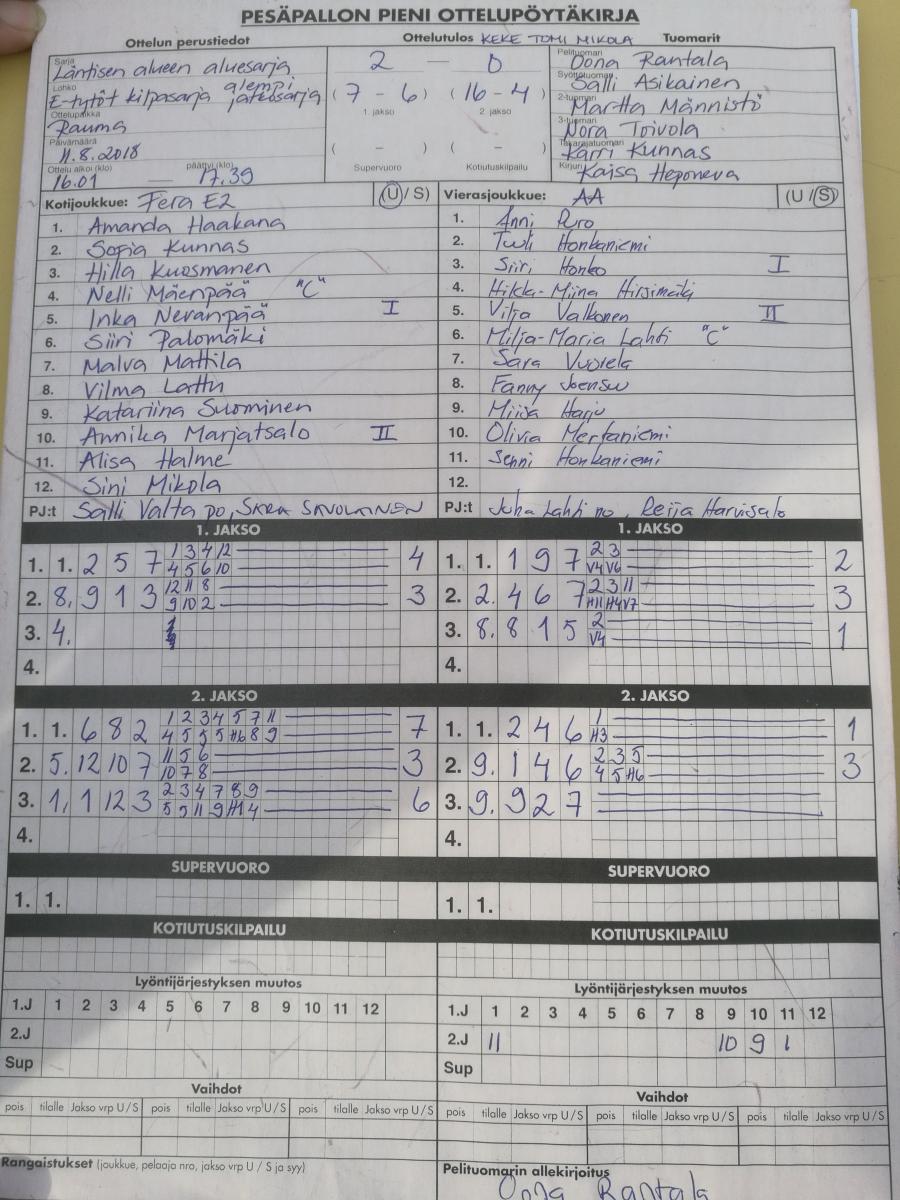 PESÄPALLON PIENI OTTELUPÖYTÄKIRJA
Ottelun perustiedot
Ottelutulos KEKE TOMI MIKOLA
Tuomarit
Sarja Läntisen alueen aluesarja
Lohko E-tytöt kilpasarja alempi jatkosarja
Ottelupaikka Rauma
Päivämäärä 11.8.2018
Ottelu alkoi (klo) päättyi (klo)
16.01 — 17.39
2 — 0
(7 - 6) (16 - 4)
1. jakso 2. jakso
( - ) ( - )
Supervuoro Kotiutuskilpailu
Pelituomari Oona Rantala
Syöttötuomari Salli Asikainen
2-tuomari Martta Männistö
3-tuomari Nora Toivola
Takarajatuomari Karri Kunnas
Kirjuri Kaisa Heponeva
Kotijoukkue: Fera E2 (U / S)
1. Amanda Haakana
2. Sofia Kunnas
3. Hilla Kuosmanen
4. Nelli Mäenpää "C"
5. Inka Nevanpää I
6. Siiri Palomäki
7. Malva Mattila
8. Vilma Lattu
9. Katariina Suominen
10. Annika Marjatsalo II
11. Alisa Halme
12. Sini Mikola
PJ:t Salli Valta po, SARA SAVOLAINEN
Vierasjoukkue: AA (U / S)
1. Anni Puro
2. Tuuli Honkaniemi
3. Siiri Honko I
4. Hilkka-Miina Hirsimäki
5. Vilja Valkonen II
6. Milja-Maria Lahti "C"
7. Sara Vuorela
8. Fanny Joensuu
9. Miisa Harju
10. Olivia Merfaniemi
11. Senni Honkaniemi
12.
PJ:t Juha Lahti po, Reija Harvisalo
1. JAKSO
1. 1. 2 5 7 1 3 4 12 4
4 5 6 10
2. 8. 9 1 3 12 11 8 3
9 10 2
3. 4.
4.
1. JAKSO
1. 1. 1 9 7 2 3 2
V4 V6
2. 2. 4 6 7 2 3 11 3
H11 H4 V7
3. 8. 8 1 5 2 1
V4
4.
2. JAKSO
1. 1. 6 8 2 1 2 3 4 5 7 11 7
4 5 5 5 H6 8 9
2. 5. 12 10 7 11 5 6 3
10 7 8
3. 1. 1 12 3 2 3 4 7 8 9 6
5 5 11 9 H1 4
4.
2. JAKSO
1. 1. 2 4 6 1 1
H3
2. 9. 1 4 6 2 3 5 3
4 5 H6
3. 9. 9 2 7
4.
SUPERVUORO
1. 1.
SUPERVUORO
1. 1.
KOTIUTUSKILPAILU
KOTIUTUSKILPAILU
Lyöntijärjestyksen muutos
1.J 1 2 3 4 5 6 7 8 9 10 11 12
2.J
Sup
Lyöntijärjestyksen muutos
1.J 1 2 3 4 5 6 7 8 9 10 11 12
2.J 11 10 9 1
Sup
Vaihdot
pois tilalle Jakso vrp U / S pois tilalle Jakso vrp U / S pois tilalle Jakso vrp U / S
Vaihdot
pois tilalle Jakso vrp U / S pois tilalle Jakso vrp U / S pois tilalle Jakso vrp U / S
Rangaistukset (joukkue, pelaaja nro, jakso vrp U / S ja syy)
Pelituomarin allekirjoitus
Oona Rantala